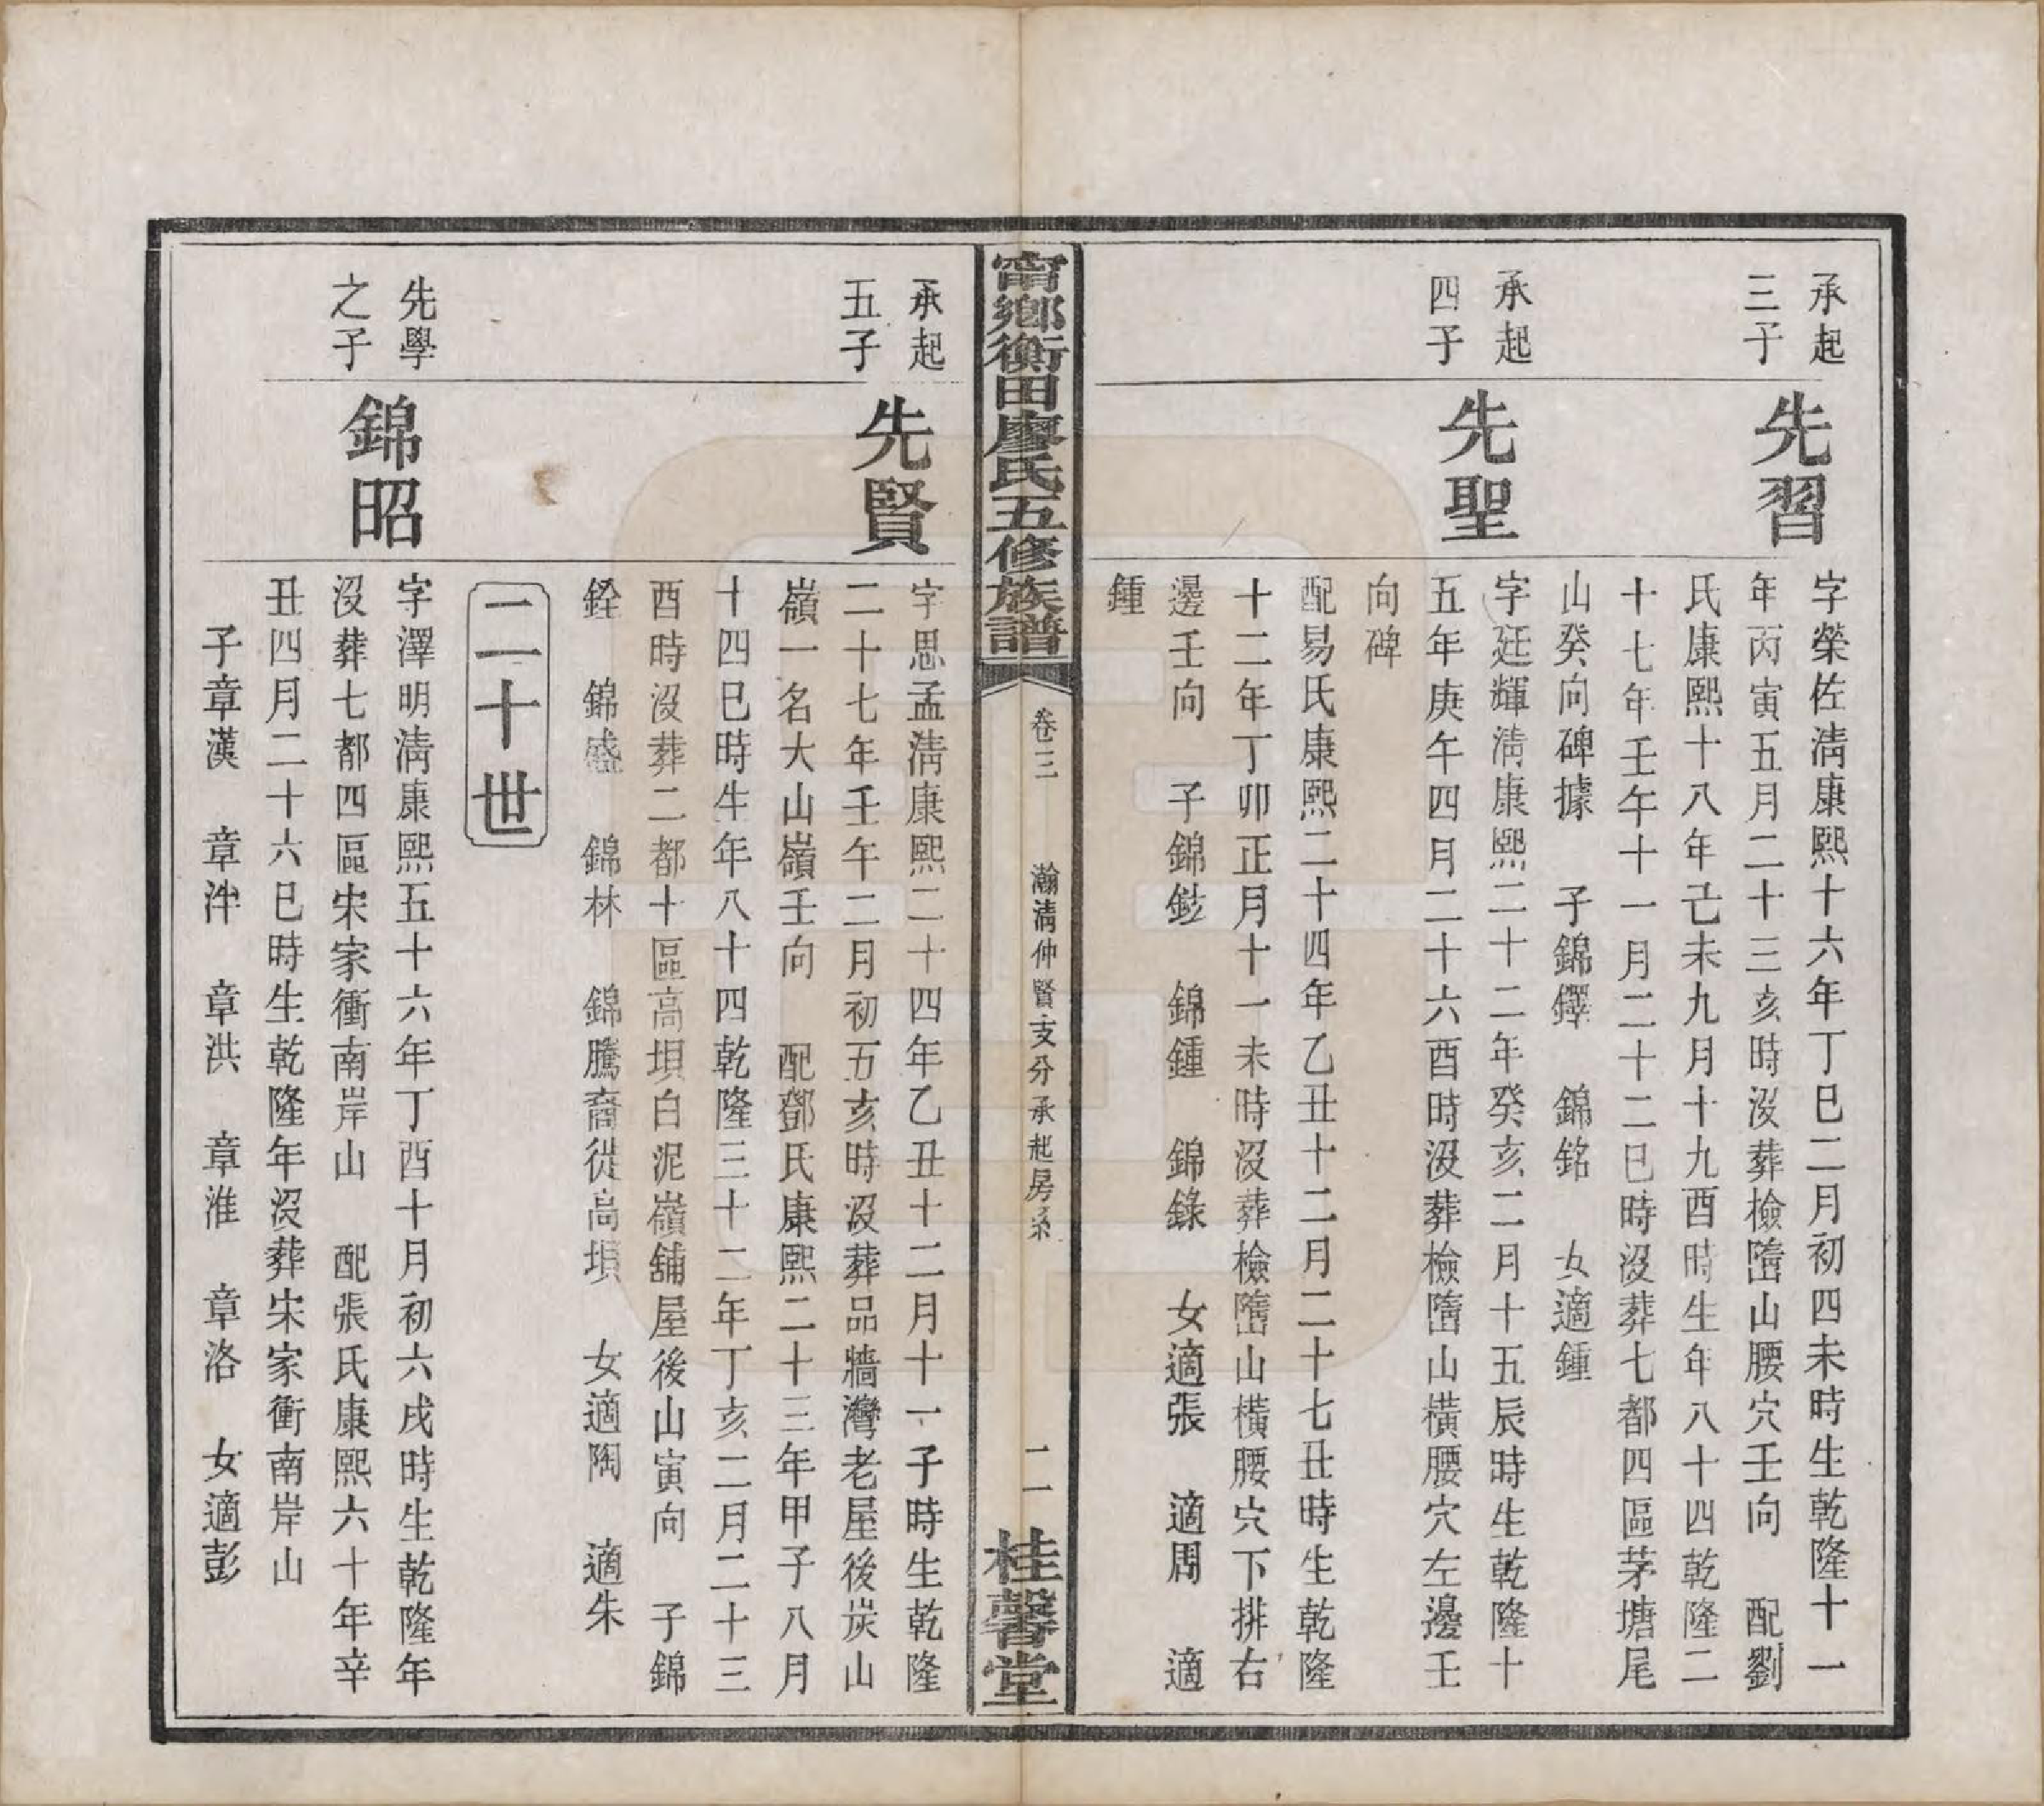 承起
三子
先習
字榮佐淸康熙十六年丁巳二月初四未時生乾隆十一
年丙寅五月二十三亥時沒葬檢嶞山腰穴壬向　配劉
氏康熙十八年己未九月十九酉時生年八十四乾隆二
十七年壬午十一月二十二巳時沒葬七都四區茅塘尾
山癸向碑據　子錦鐸　錦銘　女適鍾
承起
四子
先聖
字廷輝淸康熙二十二年癸亥二月十五辰時生乾隆十
五年庚午四月二十六酉時沒葬檢嶞山橫腰穴左邊壬
向碑
配易氏康熙二十四年乙丑十二月二十七丑時生乾隆
十二年丁卯正月十一未時沒葬檢嶞山橫腰穴下排右
邊壬向　子錦鉉　錦鍾　錦錄　女適張　適周　適
鍾
甯鄉衡田廖氏五修族譜
卷三
瀚淸仲賢支分承起房系
二
桂馨堂
承起
五子
先賢
字思孟淸康熙二十四年乙丑十二月十一子時生乾隆
二十七年壬午二月初五亥時沒葬品牆灣老屋後炭山
嶺一名大山嶺壬向　配鄧氏康熙二十三年甲子八月
十四巳時生年八十四乾隆三十二年丁亥二月二十三
酉時沒葬二都十區高垻白泥嶺舖屋後山寅向　子錦
銓　錦盛　錦林　錦騰裔從高垻　女適陶　適朱
二十世
先學
之子
錦昭
字澤明淸康熙五十六年丁酉十月初六戌時生乾隆年
沒葬七都四區宋家衝南岸山　配張氏康熙六十年辛
丑四月二十六巳時生乾隆年沒葬宋家衝南岸山
子章漢　章泮　章洪　章淮　章洛　女適彭